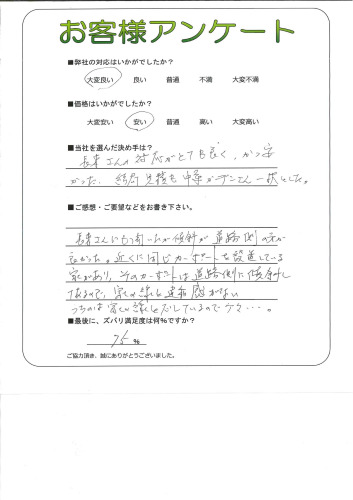 お客様アンケート
■弊社の対応はいかがでしたか？
大変良い 良い 普通 不満 大変不満
■価格はいかがでしたか？
大変安い 安い 普通 高い 大変高い
■当社を選んだ決め手は？
長東さんの対応がとても良く、かつ安
かった。結局見積も中華ガーデンさん一択とした。
■ご感想・ご要望などをお書き下さい。
長東さんにも言ったが傾斜が道路側の方が
良かった。近くに同じカーポートを設置している
家があり、そのカーポートは道路側に傾斜し
てあるので、家との間も違和感がない
うちのは家との
■最後に、ズバリ満足度は何%ですか？
75 %
ご協力頂き、誠にありがとうございました。